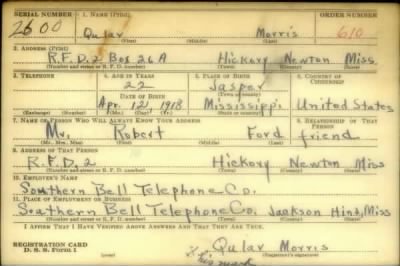 SERIAL NUMBER 1. NAME (Print) ORDER NUMBER
2600 Qular Morris 610
(First) (Middle) (Last)
2. ADDRESS (Print)
R.F.D. 2 Box 26A Hickory Newton Miss.
(Number and street or R. F. D. number) (Town) (County) (State)
3. TELEPHONE 4. AGE IN YEARS 5. PLACE OF BIRTH 6. COUNTRY OF CITIZENSHIP
22 Jasper
DATE OF BIRTH (Town or county)
Apr. 12, 1918 Mississippi United States
(Exchange) (Number) (Mo.) (Day) (Yr.) (State or country)
7. NAME OF PERSON WHO WILL ALWAYS KNOW YOUR ADDRESS 8. RELATIONSHIP OF THAT PERSON
Mr. Robert Ford friend
(Mr., Mrs., Miss) (First) (Middle) (Last)
9. ADDRESS OF THAT PERSON
R.F.D. 2 Hickory Newton Miss
(Number and street or R. F. D. number) (Town) (County) (State)
10. EMPLOYER'S NAME
Southern Bell Telephone Co.
11. PLACE OF EMPLOYMENT OR BUSINESS
Southern Bell Telephone Co. Jackson Hinds, Miss
(Number and street or R. F. D. number) (Town) (County) (State)
I AFFIRM THAT I HAVE VERIFIED ABOVE ANSWERS AND THAT THEY ARE TRUE.
REGISTRATION CARD
D. S. S. Form 1
Qular Morris
(Registrant's signature)
X his mark